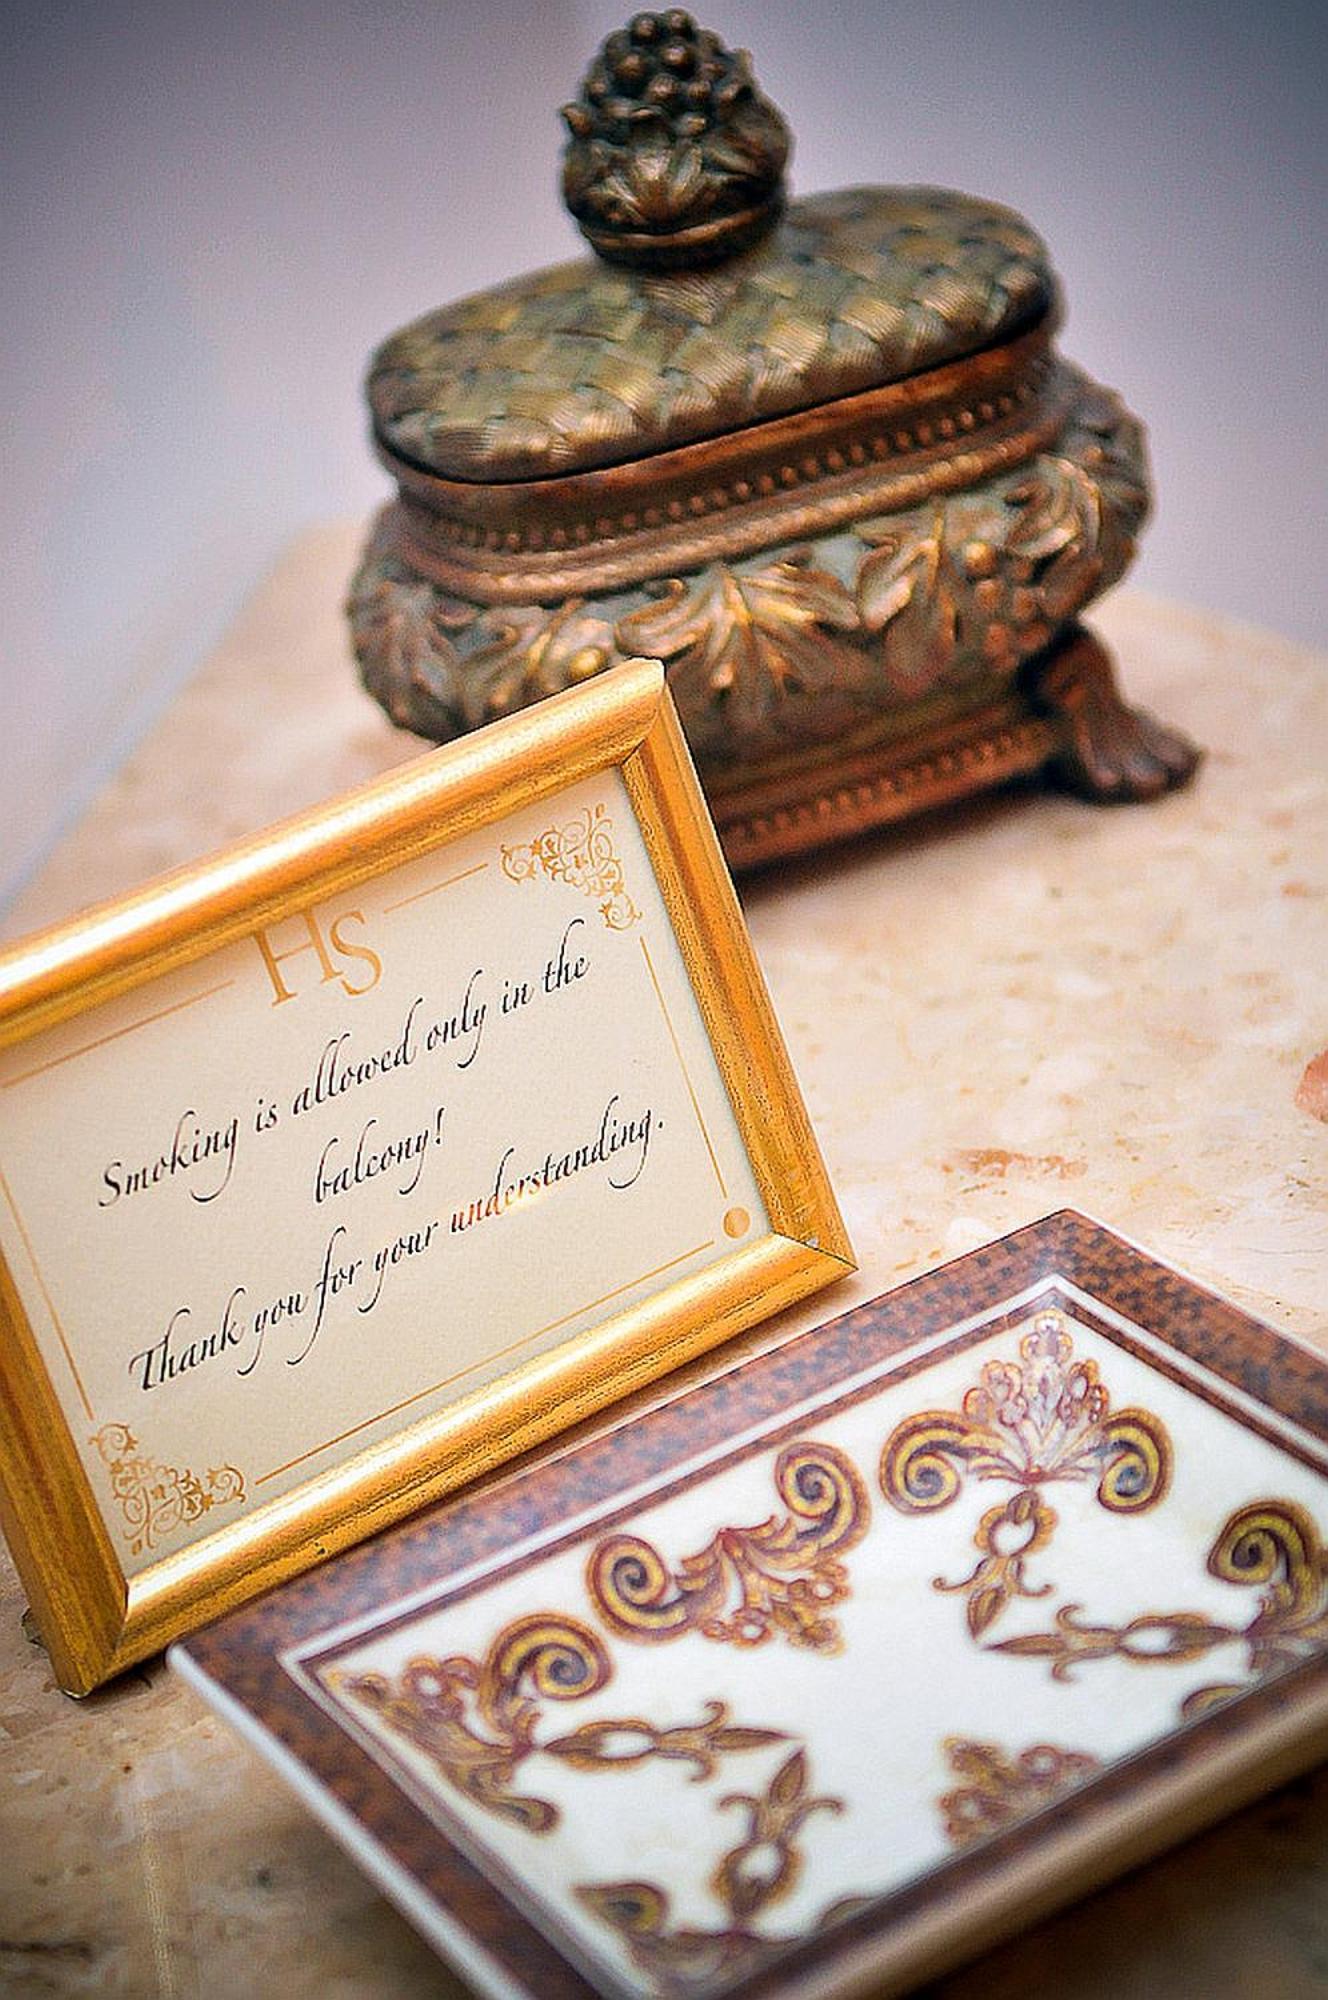 HS
Smoking is allowed only in the
balcony!
Thank you for your understanding.